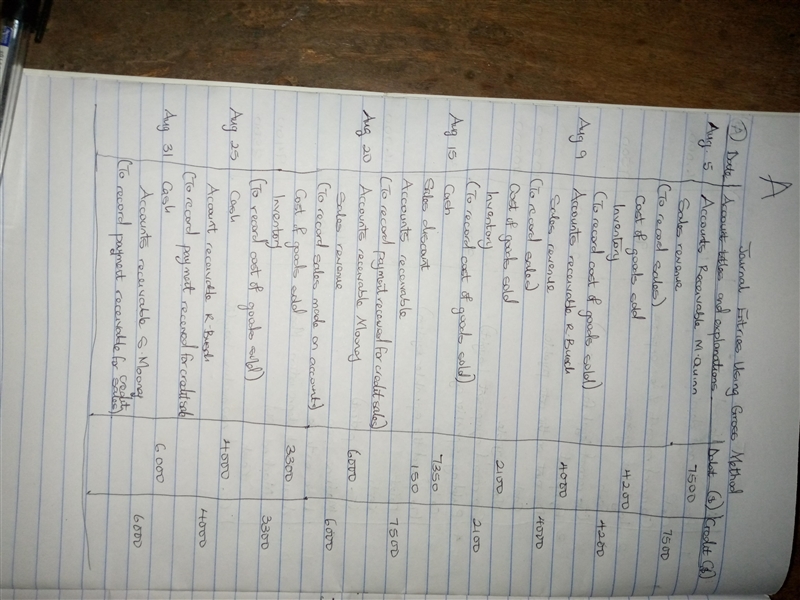 A
Journal Entries Using Gross Method
A) Date Account titles and explanations. Debit ($) Credit ($)
Aug 5 Accounts Receivable M. Quinn 7500
Sales revenue 7500
(To record sales)
Cost of goods sold 4200
Inventory 4200
(To record cost of goods sold)
Aug 9 Accounts receivable R. Busch 4000
Sales revenue 4000
(To record sales)
Cost of goods sold 2100
Inventory 2100
(To record cost of goods sold)
Aug 15 Cash 7350
Sales discount 150
Accounts receivable 7500
(To record payment received for credit sales)
Aug 20 Accounts receivable Mooney 6000
Sales revenue 6000
(To record sales made on account)
Cost of goods sold 3300
Inventory 3300
(To record cost of goods sold)
Aug 25 Cash 4000
Account receivable R. Busch 4000
(To record payment received for credit sale
Aug 31 Cash 6000
Accounts receivable S. Mooney 6000
(To record payment receivable for credit sales)